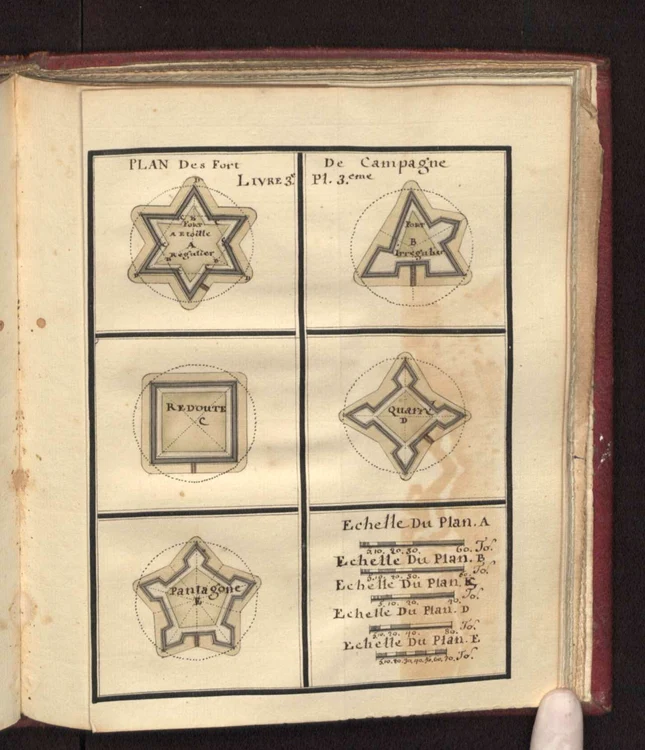 PLAN Des Fort De Campagne
LIVRE 3e Pl. 3.eme
Fort
A Etoille
A
Regulier
Fort
B
Irregulier
REDOUTE
C
Quarré
D
Pantagone
E
Echelle Du Plan. A
5.10. 20. 30. 60. To.
Echelle Du Plan. B
To.
Echelle Du Plan. C
5. 10. 20. To.
Echelle Du Plan. D
To.
Echelle Du Plan. E
To.